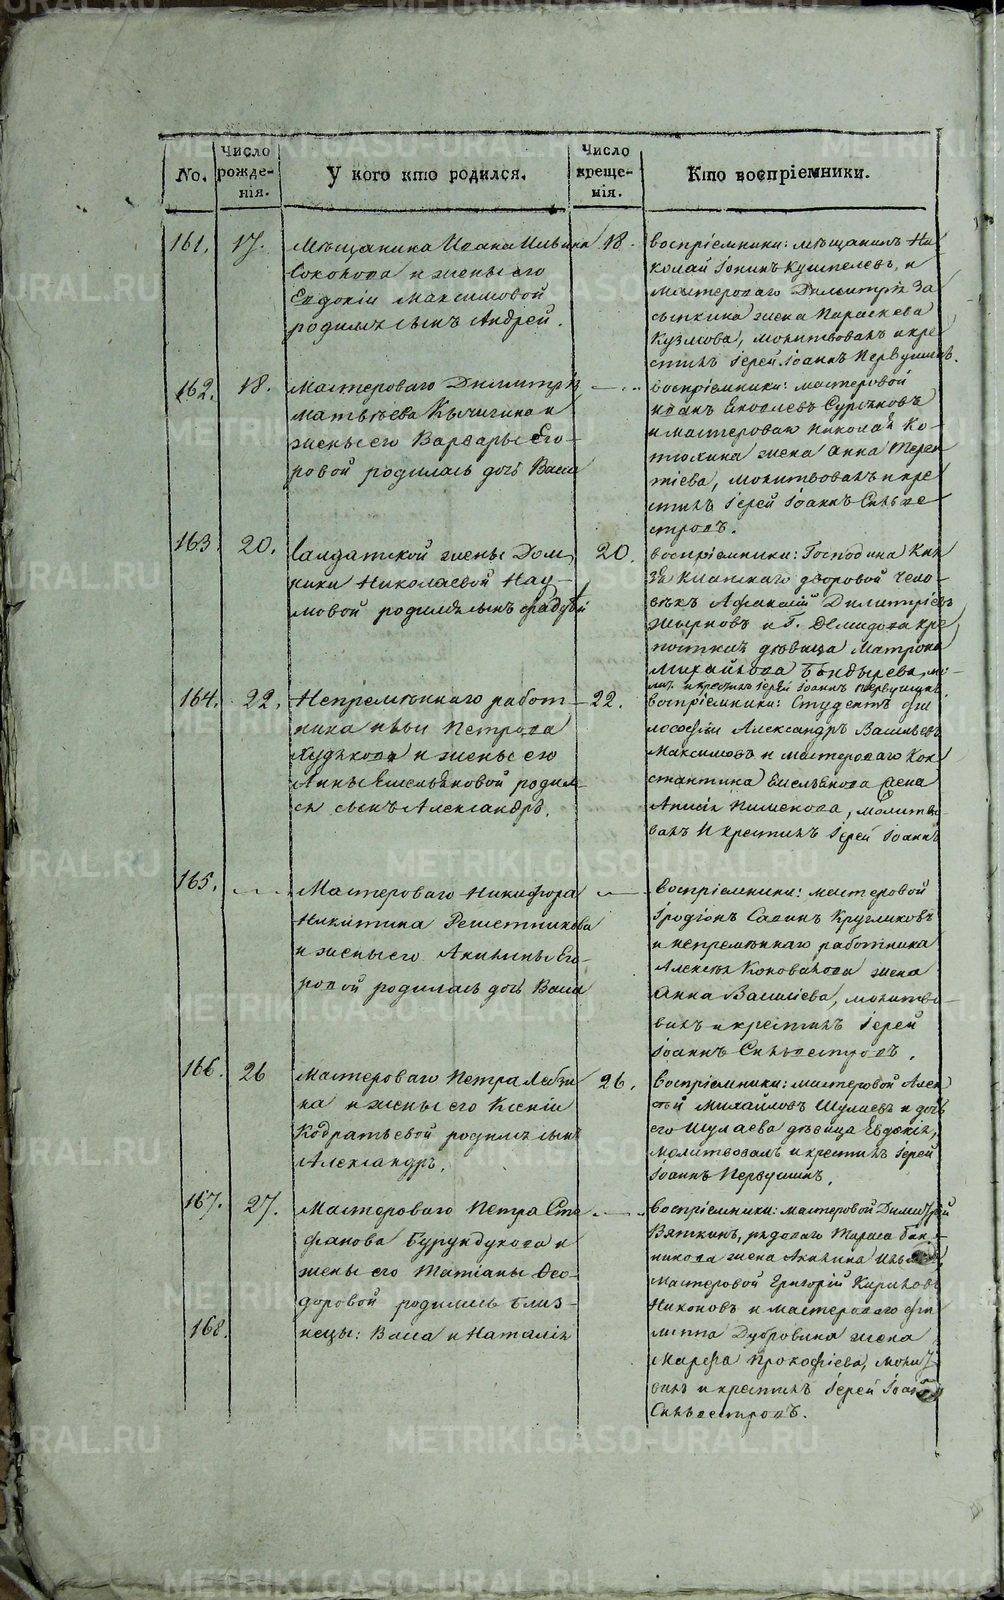 No.
Число рожде-нія.
У кого кто родился.
Число креще-нія.
Кто воспріемники.
161.
17.
Мѣщанина Ивана Ильина
Соколова и жены его
Евдокіи Максимовой
родился сынъ Андрей.
18.
воспріемники: мѣщанинъ Ни
колай Іонинъ Кушелевъ, и
Мастероваго Димитрія За
сыпкина жена Параскева
Кузмова, молитвовалъ и кре
стилъ Іерей Іоаннъ Первушинъ.
162.
18.
Мастероваго Димитрія
Матвѣева Кычигина и
жены его Варвары Его-
ровой родилась дочь Васса
воспріемники: мастеровой
Иванъ Яковлевъ
и мастероваго Николая Ко-
тюхина жена Анна Терен
тіева, молитвовалъ и кре
стилъ Іерей Іоаннъ Сильве
стровъ.
163.
20.
Салдатской жены Дом
ники Николаевой Нау-
мовой родился сынъ
20.
воспріемники: Господина Кня
дворовой чело-
вѣкъ Афанасій Димитріевъ
и Г. Демидова кре
постная дѣвица Матрона
Михайлова
и крестилъ Іерей Іоаннъ Первушинъ.
164.
22.
Непремѣннаго работ
ника Петрова
Худякова и жены его
Анны Емельяновой родил-
ся сынъ Александръ.
22.
воспріемники: Студентъ фи
лософіи Александръ Васильевъ
Максимовъ и мастероваго Кон
стантина Емельянова жена
Анисія Пименова, молитво
валъ и крестилъ Іерей Іоаннъ
165.
Мастероваго Никифора
Никитина Решетникова
и жены его Акилины Его-
ровой родилась дочь Васса
воспріемники: мастеровой
Іродіонъ Савинъ Кругликовъ
и непремѣннаго работника
Алексѣя Коновалова жена
Анна Василіева, молитво-
валъ и крестилъ Іерей
Іоаннъ Сильвестровъ.
166.
26
Мастероваго Петра Лебзи
на и жены его Ксеніи
Кодратьевой родился сынъ
Александръ.
26.
воспріемники: мастеровой Алек
сѣй Михайловъ Шулаевъ и дочь
его Шулаева дѣвица Евдокія,
молитвовалъ и крестилъ Іерей
Іоаннъ Первушинъ.
167.
27.
Мастероваго Петра Сте
фанова Бурундукова и
жены его Татіаны Ѳео-
доровой родились близ-
168.
нецы: Васса и Наталія
воспріемники: мастеровой Димитрій
Вяткинъ, рядоваго Тараса Бан-
никова жена Акилина
Мастеровой Григорій Кириловъ
Никоновъ и мастероваго Фи
липпа Дубровина жена
Марѳа Прокофіева, молит
валъ и крестилъ Іерей Іоаннъ
Сильвестровъ.
METRIKI.GASO-URAL.RU